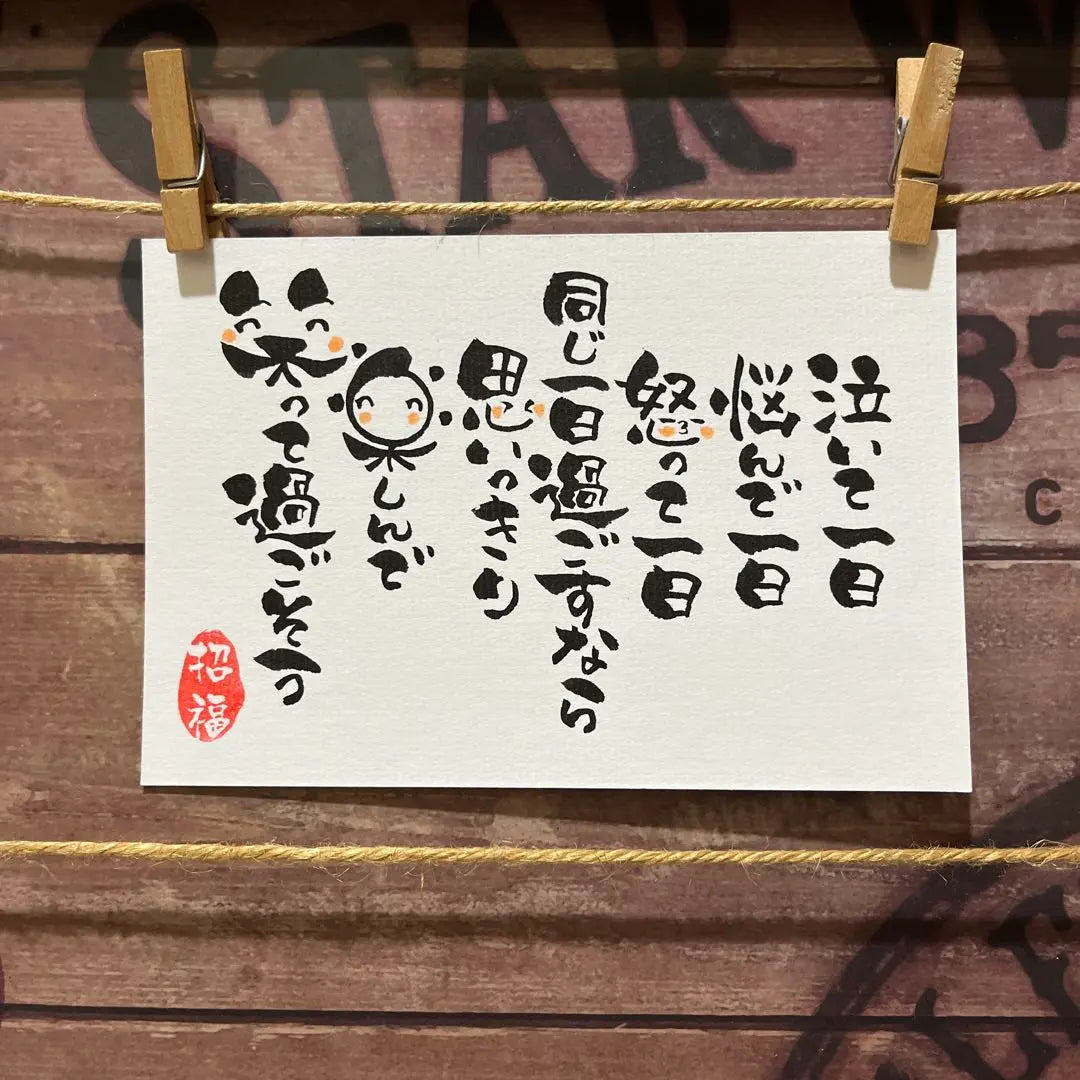 泣いて一日
悩んで一日
怒って一日
同じ一日過ごすなら
思いっきり
楽しんで
笑って過ごそう
招福
STAR W
87
C